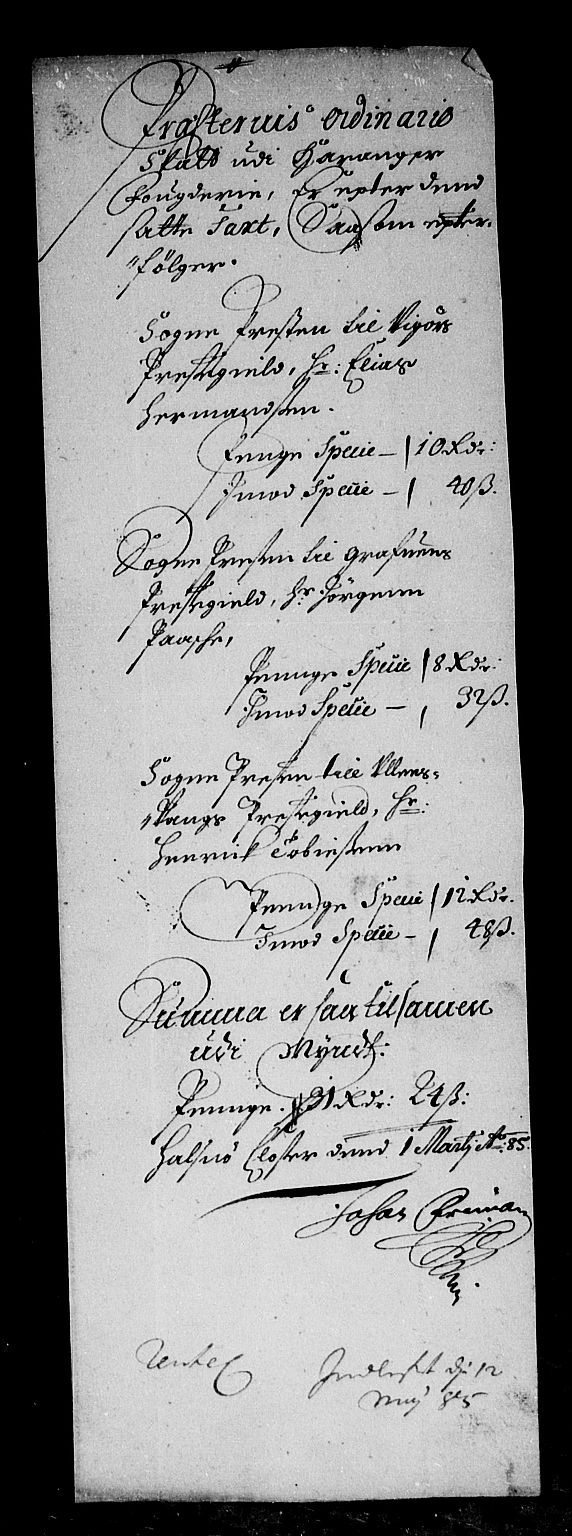 Præsternis ordinario
Skatt udi Haranger
Fougderie, Er epter dend
satte Taxt, Saasom epter-
"følger.
Sogne Presten til Vigørs
Prestegield, Hr: Elias
Hermandsen.
Penge Specie – 10 Rdr:
Imod Specie – 40 ß.
Sogne Presten til Grafuens
Prestegield, Hr Jørgenn
Paasche,
Pennge Specie 8 Rdr:
Imod Specie – 32 ß.
Sogne Presten till Ullens-
"Vangs Prestegield, Hr:
Henrick Tobiesenn
Pennge Specie 12 Rdr.
Imod Specie – 48 ß.
Summa er saa tilsamen
udi Myndt:
Pennge 31 Rdr: 24 ß:
Halsnö Closter dend 1 Martj Ao: 85
Johan
Indlest dj 12
Maij 85